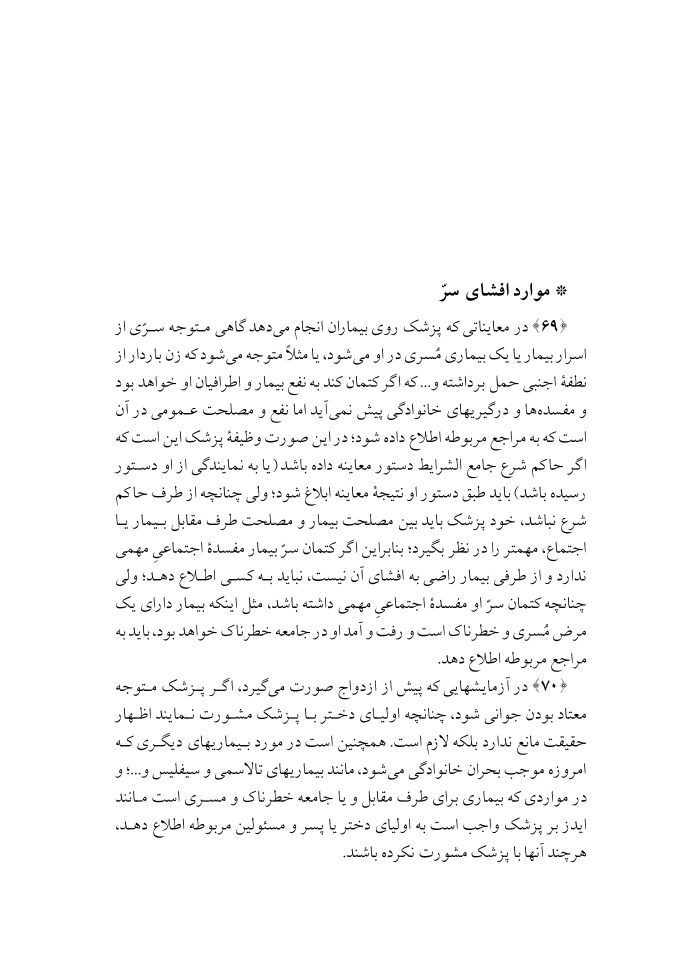 ❊ موارد افشای سرّ
﴿۶۹﴾ در معایناتی که پزشک روی بیماران انجام می‌دهد گاهی متوجه سرّی از
اسرار بیمار یا یک بیماری مُسری در او می‌شود، یا مثلاً متوجه می‌شود که زن باردار از
نطفهٔ اجنبی حمل برداشته و... که اگر کتمان کند به نفع بیمار و اطرافیان او خواهد بود
و مفسده‌ها و درگیریهای خانوادگی پیش نمی‌آید اما نفع و مصلحت عمومی در آن
است که به مراجع مربوطه اطلاع داده شود؛ در این صورت وظیفهٔ پزشک این است که
اگر حاکم شرع جامع الشرایط دستور معاینه داده باشد (یا به نمایندگی از او دستور
رسیده باشد) باید طبق دستور او نتیجهٔ معاینه ابلاغ شود؛ ولی چنانچه از طرف حاکم
شرع نباشد، خود پزشک باید بین مصلحت بیمار و مصلحت طرف مقابل بیمار یا
اجتماع، مهمتر را در نظر بگیرد؛ بنابراین اگر کتمان سرّ بیمار مفسدهٔ اجتماعیِ مهمی
ندارد و از طرفی بیمار راضی به افشای آن نیست، نباید به کسی اطلاع دهد؛ ولی
چنانچه کتمان سرّ او مفسدهٔ اجتماعیِ مهمی داشته باشد، مثل اینکه بیمار دارای یک
مرض مُسری و خطرناک است و رفت و آمد او در جامعه خطرناک خواهد بود، باید به
مراجع مربوطه اطلاع دهد.
﴿۷۰﴾ در آزمایشهایی که پیش از ازدواج صورت می‌گیرد، اگر پزشک متوجه
معتاد بودن جوانی شود، چنانچه اولیای دختر با پزشک مشورت نمایند اظهار
حقیقت مانع ندارد بلکه لازم است. همچنین است در مورد بیماریهای دیگری که
امروزه موجب بحران خانوادگی می‌شود، مانند بیماریهای تالاسمی و سیفلیس و...؛ و
در مواردی که بیماری برای طرف مقابل و یا جامعه خطرناک و مسری است مانند
ایدز بر پزشک واجب است به اولیای دختر یا پسر و مسئولین مربوطه اطلاع دهد،
هرچند آنها با پزشک مشورت نکرده باشند.